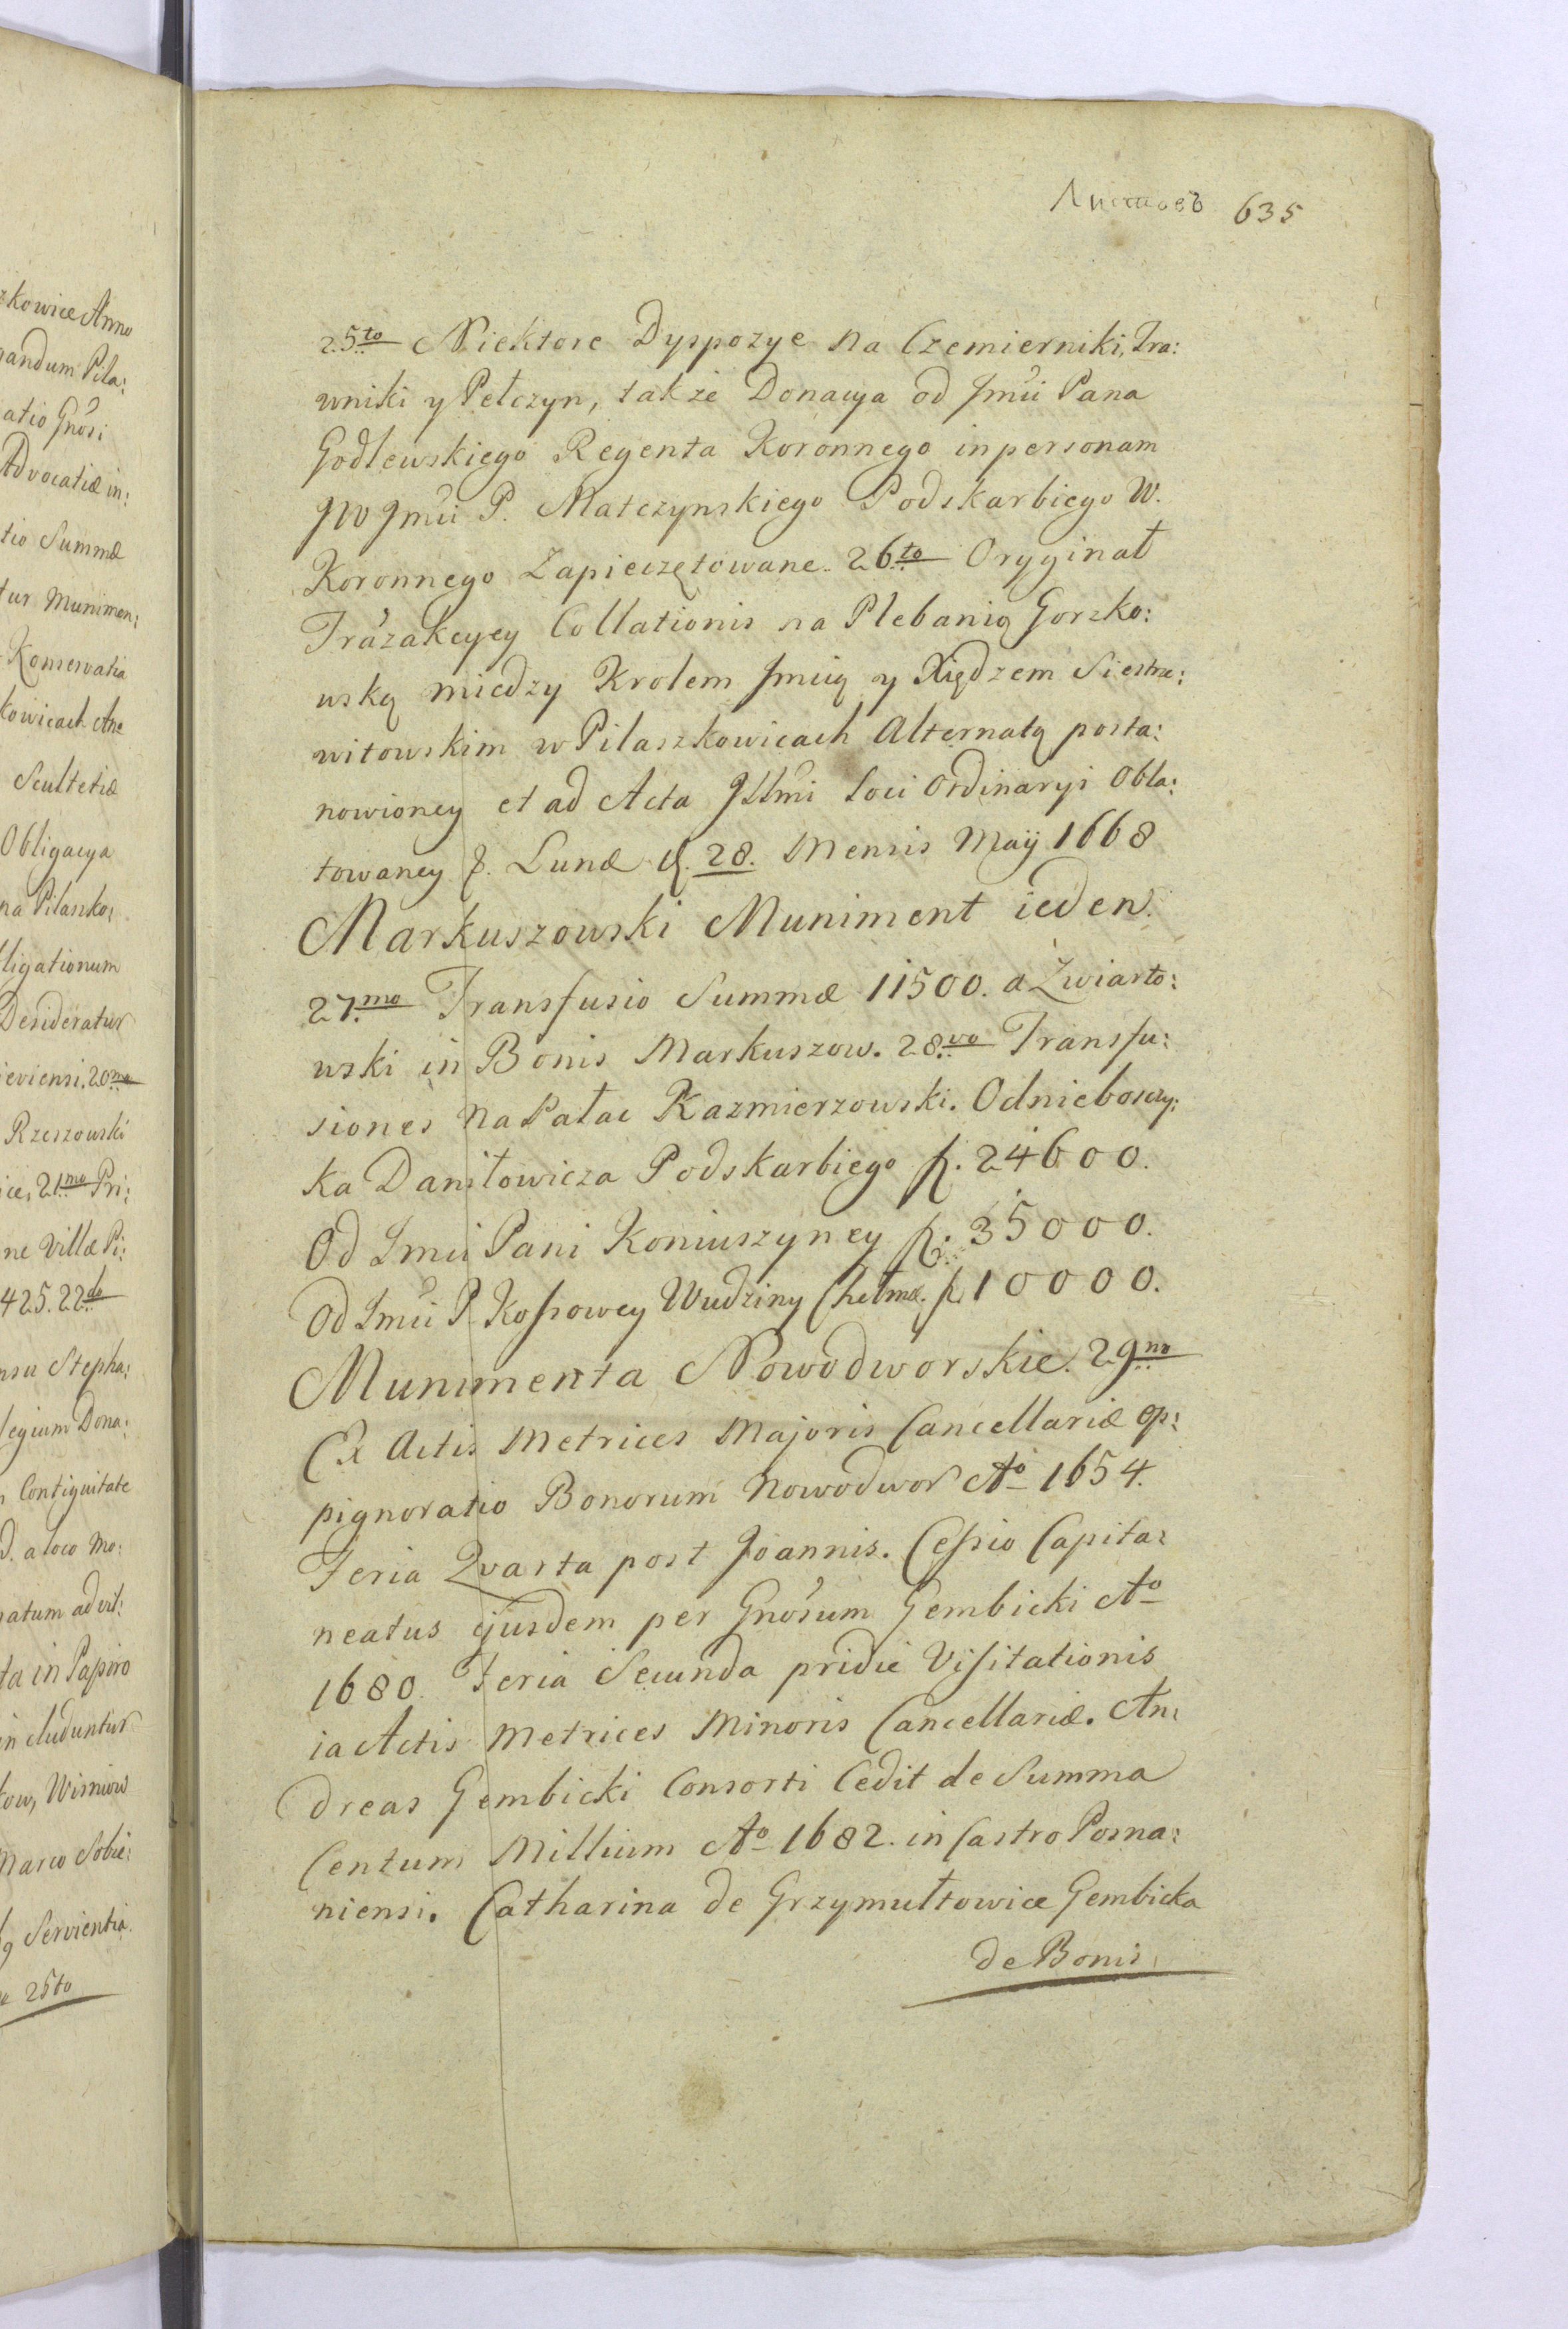 Листовъ 635
zkowice Anno
randum Pila:
atio Gnosi
Advocatiæ in:
tio Summæ
tur Munimen:
Konserwatia
kowicach Ane
Scultetiæ
Obligacya
na Pilaszko:
ligationum
Desideratur
ieviensi. 20mo
Rzeszowski
ice, 21mo Pri:
ne Villæ Pi:
425. 22do
nsu Stepha:
legium Dona:
Contiguitate
d. a loco Mo:
natum ad vil:
ta in Papiro
in cluduntur
kow, Wisniow
Marco Sobie:
Servientia.
25to
25to Niektore Dyspozye na Czemierniki, Tra:
wniki y Pełczyn, także Donacya od Jmći Pana
Godlewskiego Regenta Koronnego in personam
JW Jmći P. Matczynskiego Podskarbiego W.
Koronnego Zapieczętowane. 26to Oryginał
Trazakcyey Collationis na Plebanią Gorzko:
wską miedzy Krolem Jmcią y Xiędzem Siestrze:
witowskim w Pilaszkowicach Alternatą posta:
nowioney et ad Acta Jllmi Loci Ordinaryi Obla:
towaney f. Lunæ d. 28. Mensis Maÿ 1668
Markuszowski Muniment ieden.
27.mo Transfusio Summæ 11500. a Zwiarto:
wski in Bonis Markuszow. 28vo Transfu:
siones na Pałac Kazmierzowski. Od nieboszczy:
ka Daniłowicza Podskarbiego f. 24600.
Od Jmći Pani Koniuszyney f. 35000.
Od Jmći P. Kossowey Wudziny Chełmæ. f. 10000.
Munimenta Nowodworskie. 29no
Ex Actis Metrices Majoris Cancellariæ op:
pignoratio Bonorum Nowodwor Ao 1654.
Feria Qvarta post Joannis. Cessio Capita:
neatus ejusdem per Gnosum Gembicki Ao
1680. Feria Secunda pridie Visitationis
ia Actis Metrices Minoris Cancellariæ. An:
dreas Gembicki Consorti Cedit de Summa
Centum Millium Ao 1682. in Castro Posna:
niensi. Catharina de Grzymułtowice Gembicka
de Bonis